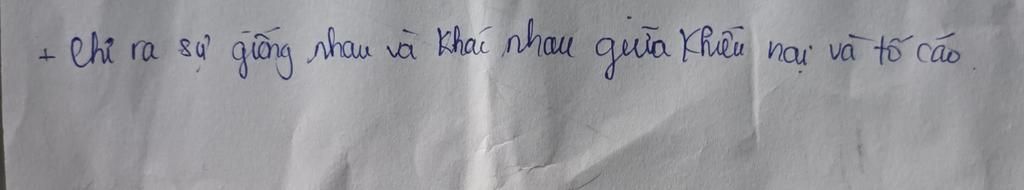 + Chỉ ra sự giống nhau và khác nhau giữa khiếu nại và tố cáo.